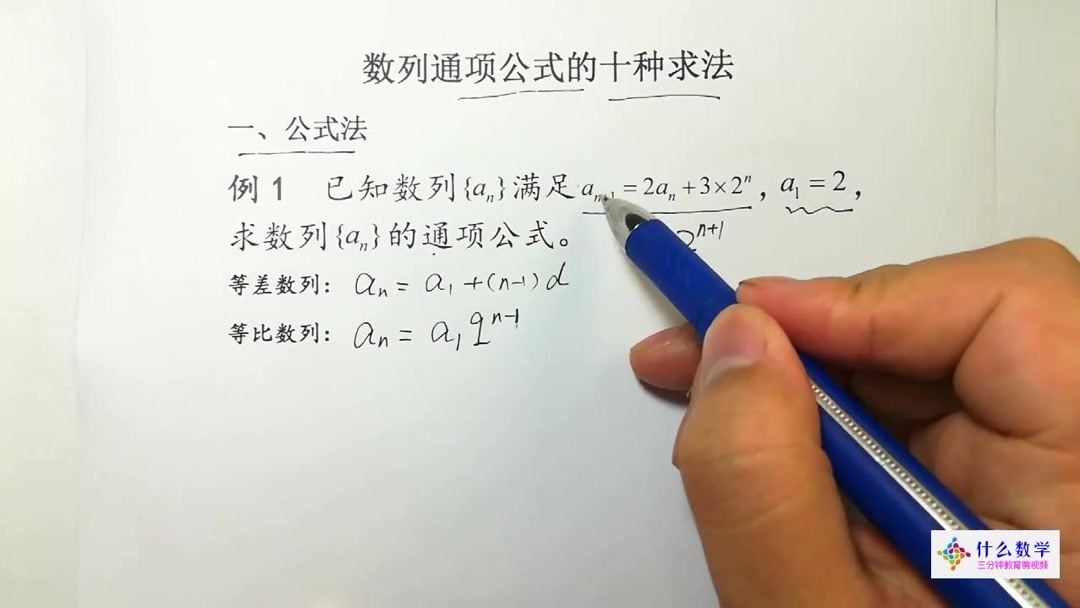 数列通项公式的十种求法
一、公式法
例1 已知数列{aₙ}满足aₙ₊₁=2aₙ+3×2ⁿ，a₁=2，
求数列{aₙ}的通项公式。
2ⁿ⁺¹
等差数列：aₙ=a₁+(n-1)d
等比数列：aₙ=a₁qⁿ⁻¹
什么数学
三分钟教育微视频